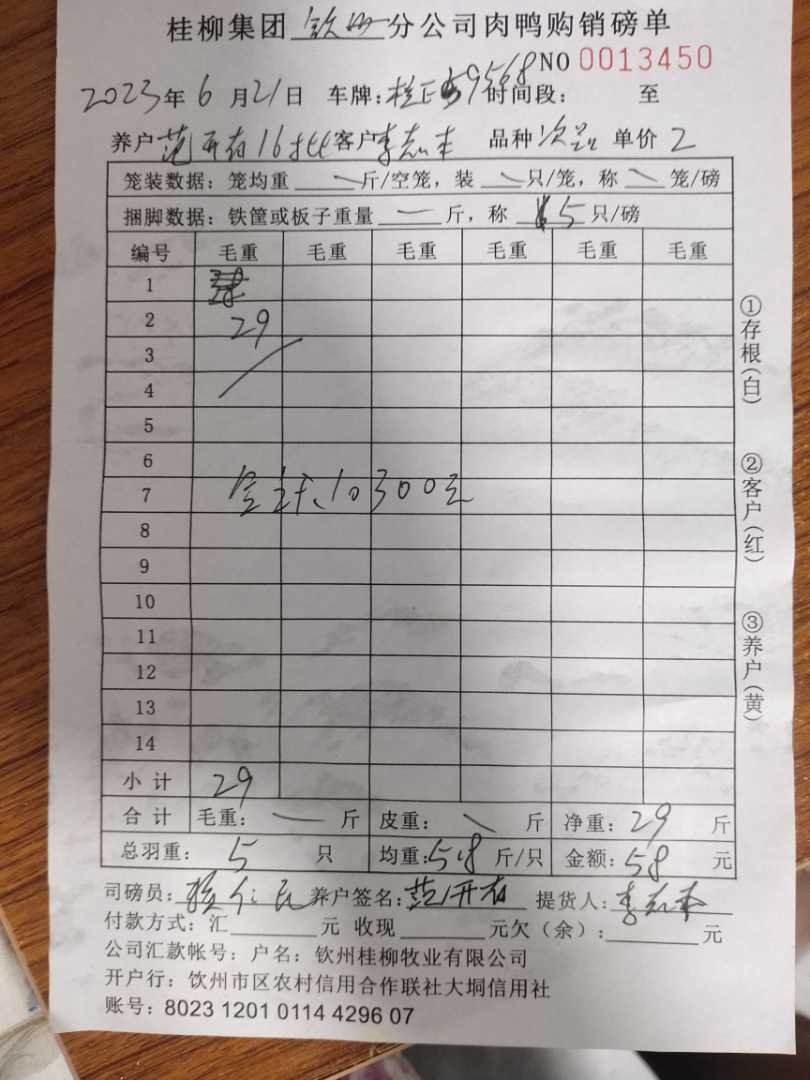 桂柳集团钦州分公司肉鸭购销磅单
NO 0013450
2023年6月21日 车牌:桂 59568 时间段: 至
养户 范开有16批 客户 李志本 品种 次品 单价 2
笼装数据:笼均重 — 斤/空笼,装 — 只/笼,称 — 笼/磅
捆脚数据:铁筐或板子重量 — 斤,称 5 只/磅
编号 毛重 毛重 毛重 毛重 毛重 毛重
1
2 29
3
4
5
6
7 10300元
8
9
10
11
12
13
14
小计 29
合计 毛重: — 斤 皮重: — 斤 净重: 29 斤
总羽重: 5 只 均重: 5.8 斤/只 金额: 58 元
司磅员: 养户签名: 范开有 提货人: 李志本
付款方式:汇 元 收现 元欠(余): 元
公司汇款帐号:户名:钦州桂柳牧业有限公司
开户行:饮州市区农村信用合作联社大垌信用社
账号:8023 1201 0114 4296 07
①存根(白)
②客户(红)
③养户(黄)